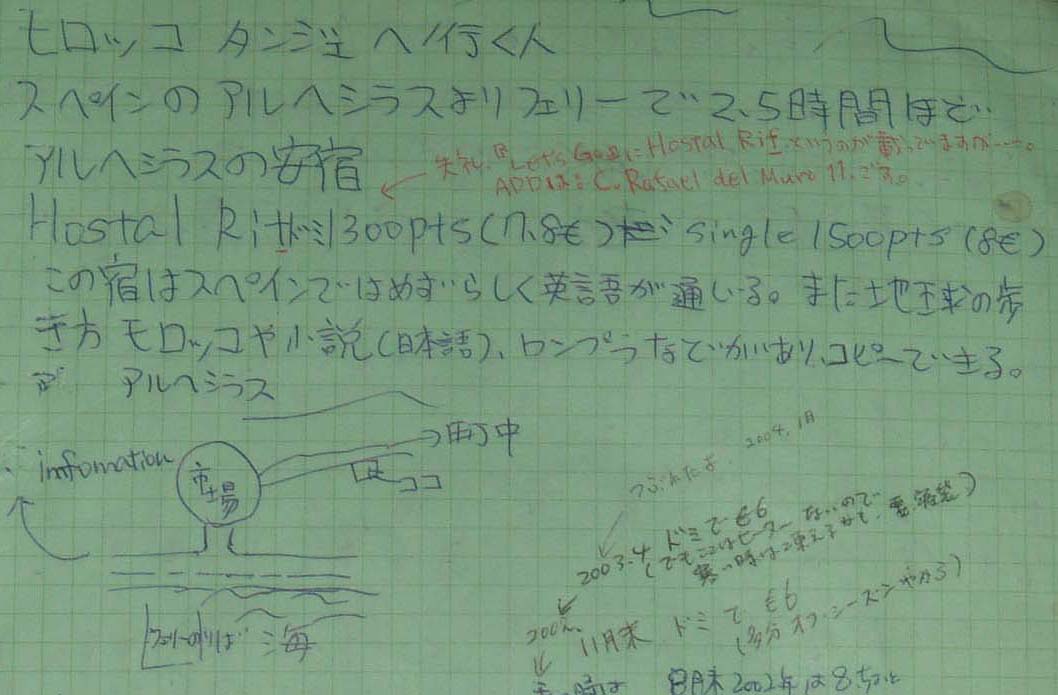 モロッコ タンジェ へ行く人
スペインの アルヘシラスよりフェリーで 2.5時間ほど
アルヘシラスの安宿
失礼、『Let's Go』に Hostal Rif というのが載っていますが…。
ADDは: C. Rafael del Muro 11. です。
Hostal Rif ドミ 1300pts (7.8€) single 1500pts (8€)
この宿はスペインではめずらしく英語が通じる。また地球の歩
き方 モロッコや小説(日本語)、ロンプラなどがあり、コピーできる。
アルヘシラス
→町中
2004.1月
imfomation
市場
ココ
つぶれたよ.
2003.4 ドミで €6
(でもここはヒーターないので
寒い時は凍えるかも、要寝袋)
フェリーのりば 海
11月末 ドミで €6
(多分オフシーズンやから)
8月末 2002年は8ちょと